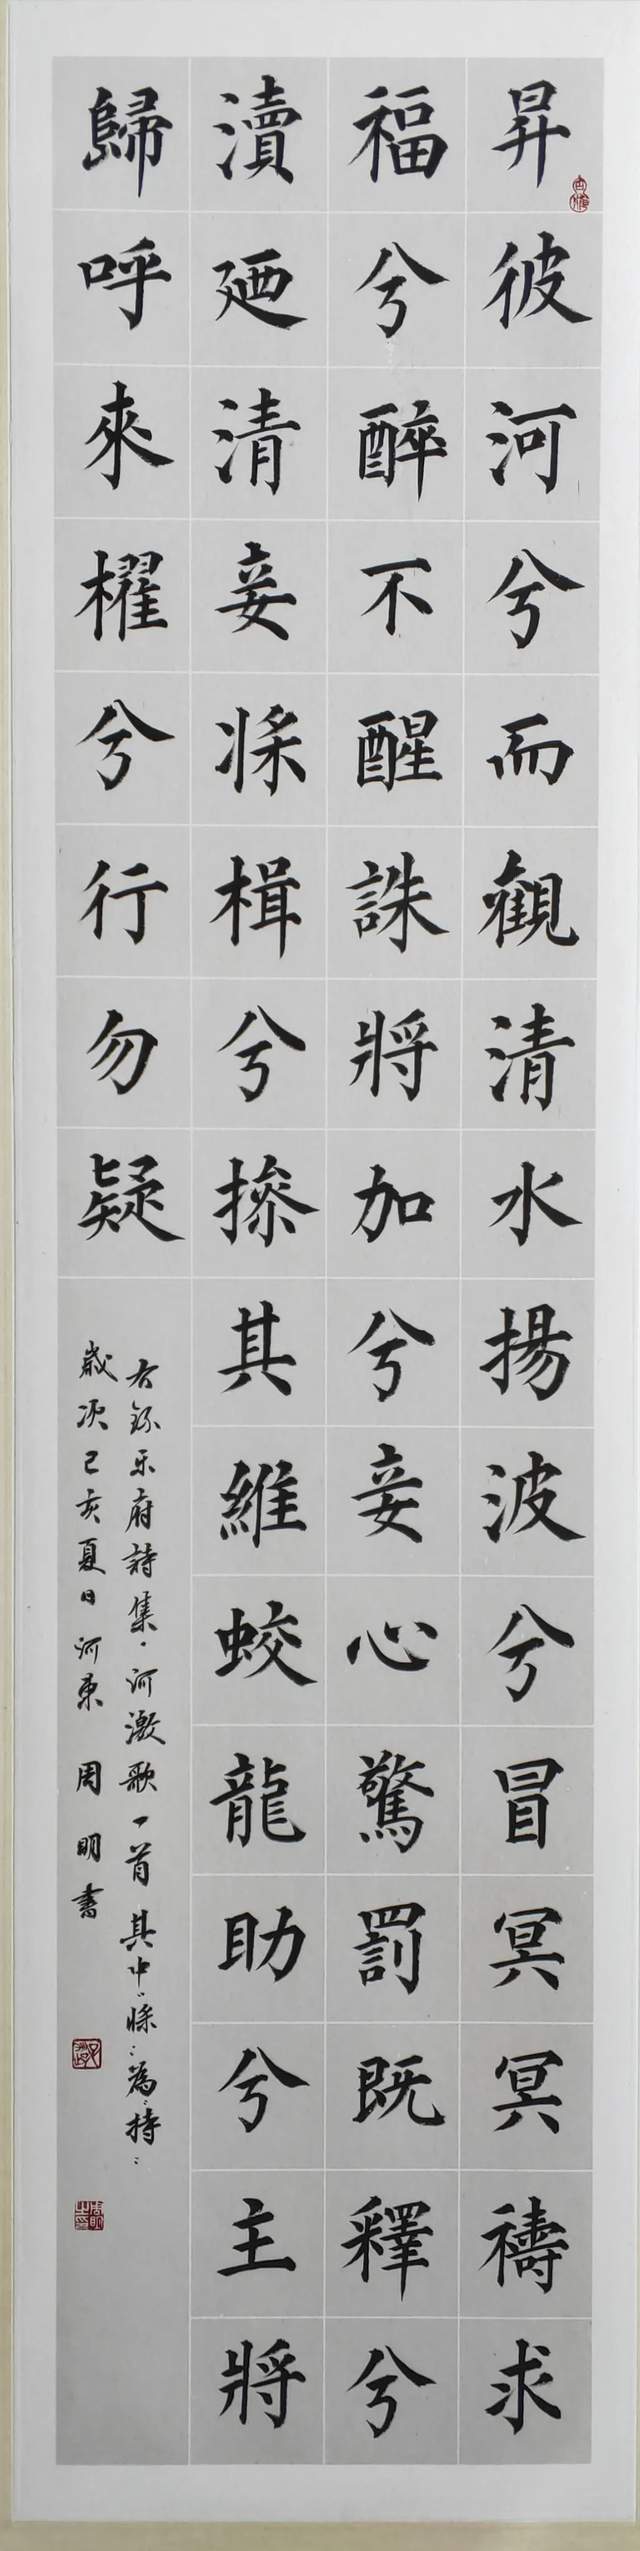 昇彼河兮而觀清水揚波兮冒冥冥禱求
福兮醉不醒誅將加兮妾心驚罰既釋兮
瀆廼清妾㨾楫兮操其維蛟龍助兮主將
歸呼來櫂兮行勿疑
右錄乐府詩集·河激歌一首 其中㨾為持
歲次己亥夏日河東 周明書